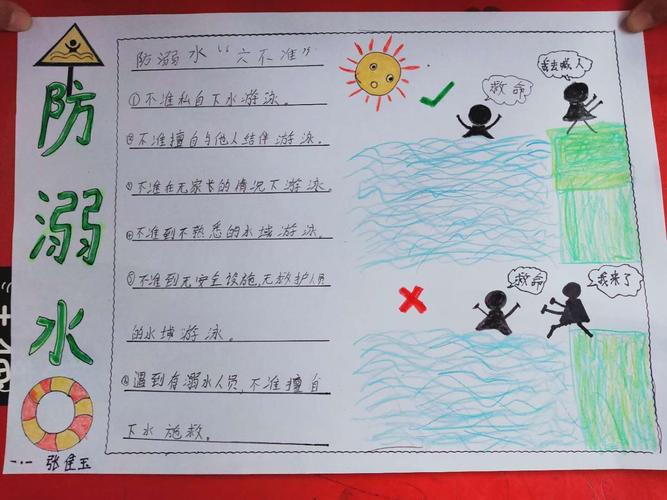 防溺水
防溺水“六不准”
①不准私自下水游泳。
②不准擅自与他人结伴游泳。
③不准在无家长的情况下游泳。
④不准到不熟悉的水域游泳。
⑤不准到无安全设施,无救护人员
的水域游泳。
⑥遇到有溺水人员,不准擅自
下水施救。
救命
我去喊人
救命
我来了
一·一 张佳玉